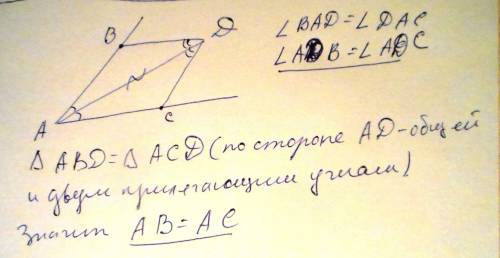 B D
∠BAD = ∠DAC
∠ADB = ∠ADC
A C
Δ ABD = Δ ACD (по стороне AD-общей
и двум прилегающим углам)
Значит AB = AC